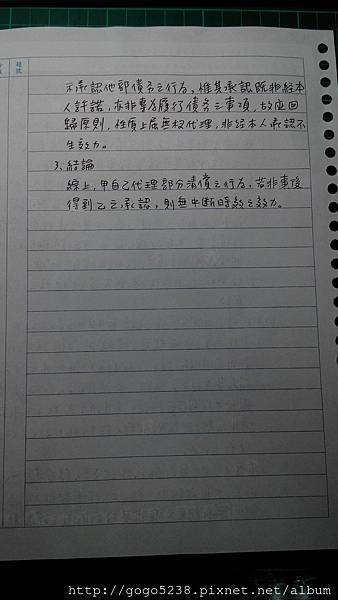 題號
示承認他部債務之行為，惟其承認既非經本
人許諾，亦非專為履行債務之事項，故應回
歸原則，性質上屬無权代理，非經本人承認不
生效力。
3、結論
綜上，甲自己代理部分清償之行為，若非事後
得到乙之承認，則無中斷時效之效力。
http://gogo5238.pixnet.net/album